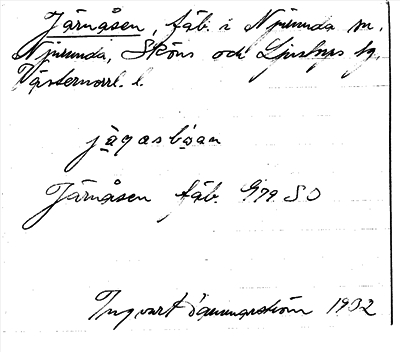 Järnåsen, fäb. i Njurunda sn.
Njurunda, Sköns och Ljustorps tg.
Västernorrl. l.
Järnåsen fäb. G79 SO
Ingvart Dammarström 1932